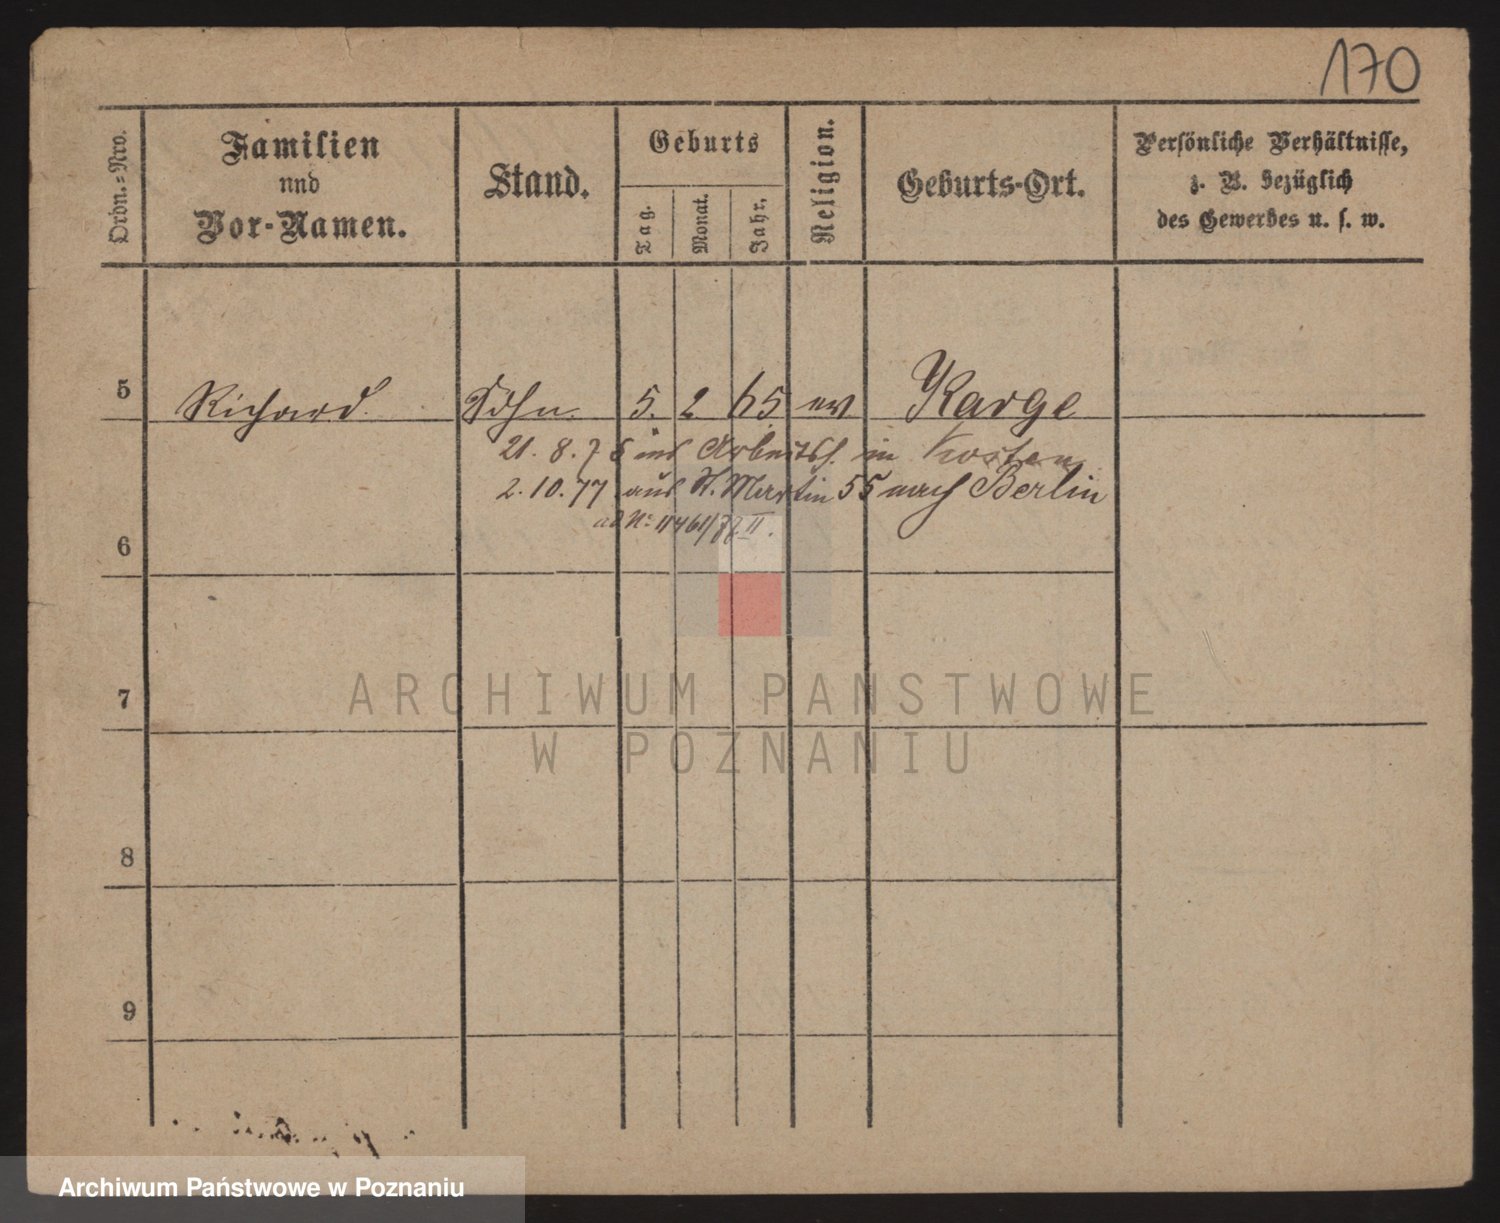 170
Ordn.-Nro.
Familien
und
Vor-Namen.
Stand.
Geburts
Tag.
Monat.
Jahr.
Religion.
Geburts-Ort.
Persönliche Verhältnisse,
z. B. bezüglich
des Gewerbes u. s. w.
5 Richard Sohn 5. 2 65 ev Karge
21. 8. 76 ins Arbeitsh. in Kosten
2. 10. 77 aus St. Martin 55 nach Berlin
ad No 11461/77 II.
6
7
8
9
ARCHIWUM PANSTWOWE
W POZNANIU
Archiwum Państwowe w Poznaniu